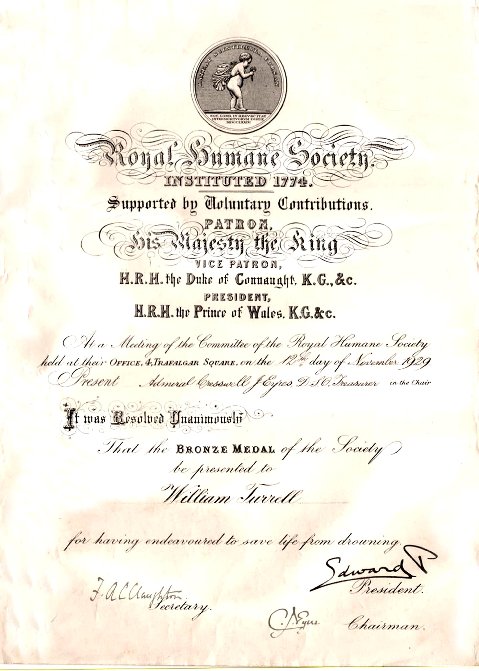 LATEAT SCINTILLVLA FORSAN
Royal Humane Society.
INSTITUTED 1774.
Supported by Voluntary Contributions.
PATRON,
His Majesty the King
VICE PATRON,
H.R.H. the Duke of Connaught, K.G., &c.
PRESIDENT,
H.R.H. the Prince of Wales, K.G. &c.
At a Meeting of the Committee of the Royal Humane Society
held at their OFFICE, 4, TRAFALGAR SQUARE, on the 12th day of November 1929
Present Admiral J Eyres D.S.O. Treasurer in the Chair
It was Resolved Unanimously
That the BRONZE MEDAL of the Society
be presented to
William Turrell
for having endeavoured to save life from drowning.
Edward P
President.
F. A. C. Claughton
Secretary.
C J Eyres
Chairman.